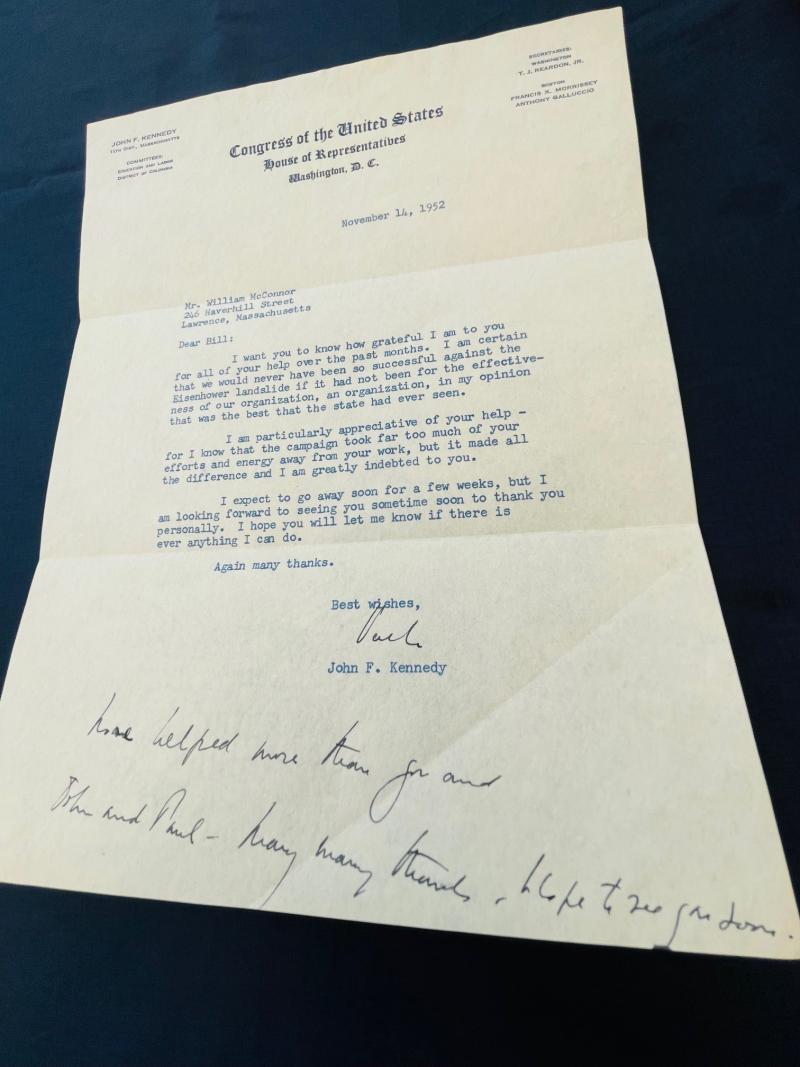 JOHN F. KENNEDY
11TH DIST., MASSACHUSETTS
COMMITTEES:
EDUCATION AND LABOR
DISTRICT OF COLUMBIA
Congress of the United States
House of Representatives
Washington, D. C.
SECRETARIES:
WASHINGTON
T. J. REARDON, JR.
BOSTON
FRANCIS X. MORRISSEY
ANTHONY GALLUCCIO
November 14, 1952
Mr. William McConnor
246 Haverhill Street
Lawrence, Massachusetts
Dear Bill:
I want you to know how grateful I am to you
for all of your help over the past months. I am certain
that we would never have been so successful against the
Eisenhower landslide if it had not been for the effective-
ness of our organization, an organization, in my opinion
that was the best that the state had ever seen.
I am particularly appreciative of your help -
for I know that the campaign took far too much of your
efforts and energy away from your work, but it made all
the difference and I am greatly indebted to you.
I expect to go away soon for a few weeks, but I
am looking forward to seeing you sometime soon to thank you
personally. I hope you will let me know if there is
ever anything I can do.
Again many thanks.
Best wishes,
John F. Kennedy
helped more than you and
John and Paul - Many many thanks. hope to see you soon.